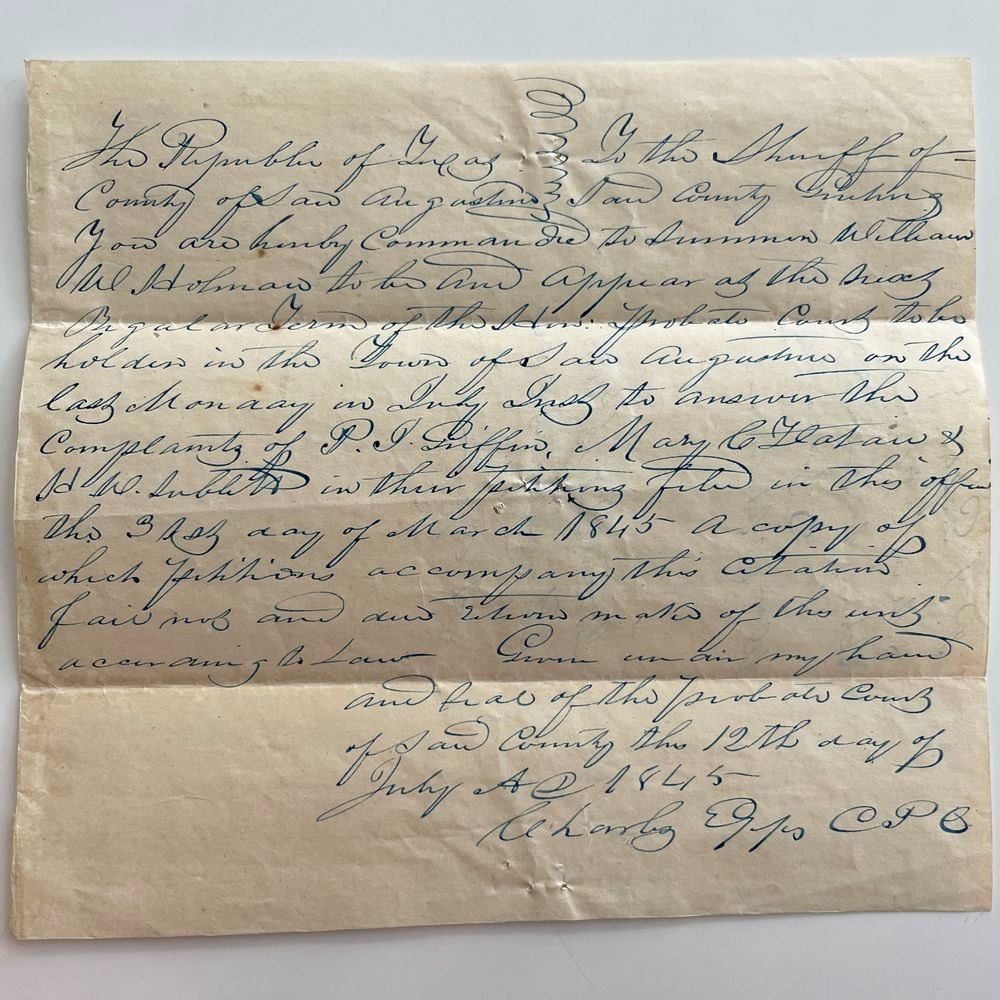 The Republic of Texas To the Sheriff of
County of San Augustine Said County Greeting
You are hereby Commanded to Summon William
W Holman to be and appear at the next
Regular Term of the Hon. Probate Court to be
holden in the Town of San Augustine on the
last Monday in July Inst to answer the
Complaint of P. I. Griffin, Mary C Flatau &
H. W. Sublett in their petitions filed in this office
the 31st day of March 1845 A copy of
which petitions accompany this citation
fail not and due return make of this writ
according to Law Given under my hand
and Seal of the Probate Court
of Said County this 12th day of
July AD 1845
Charles Epps C P C